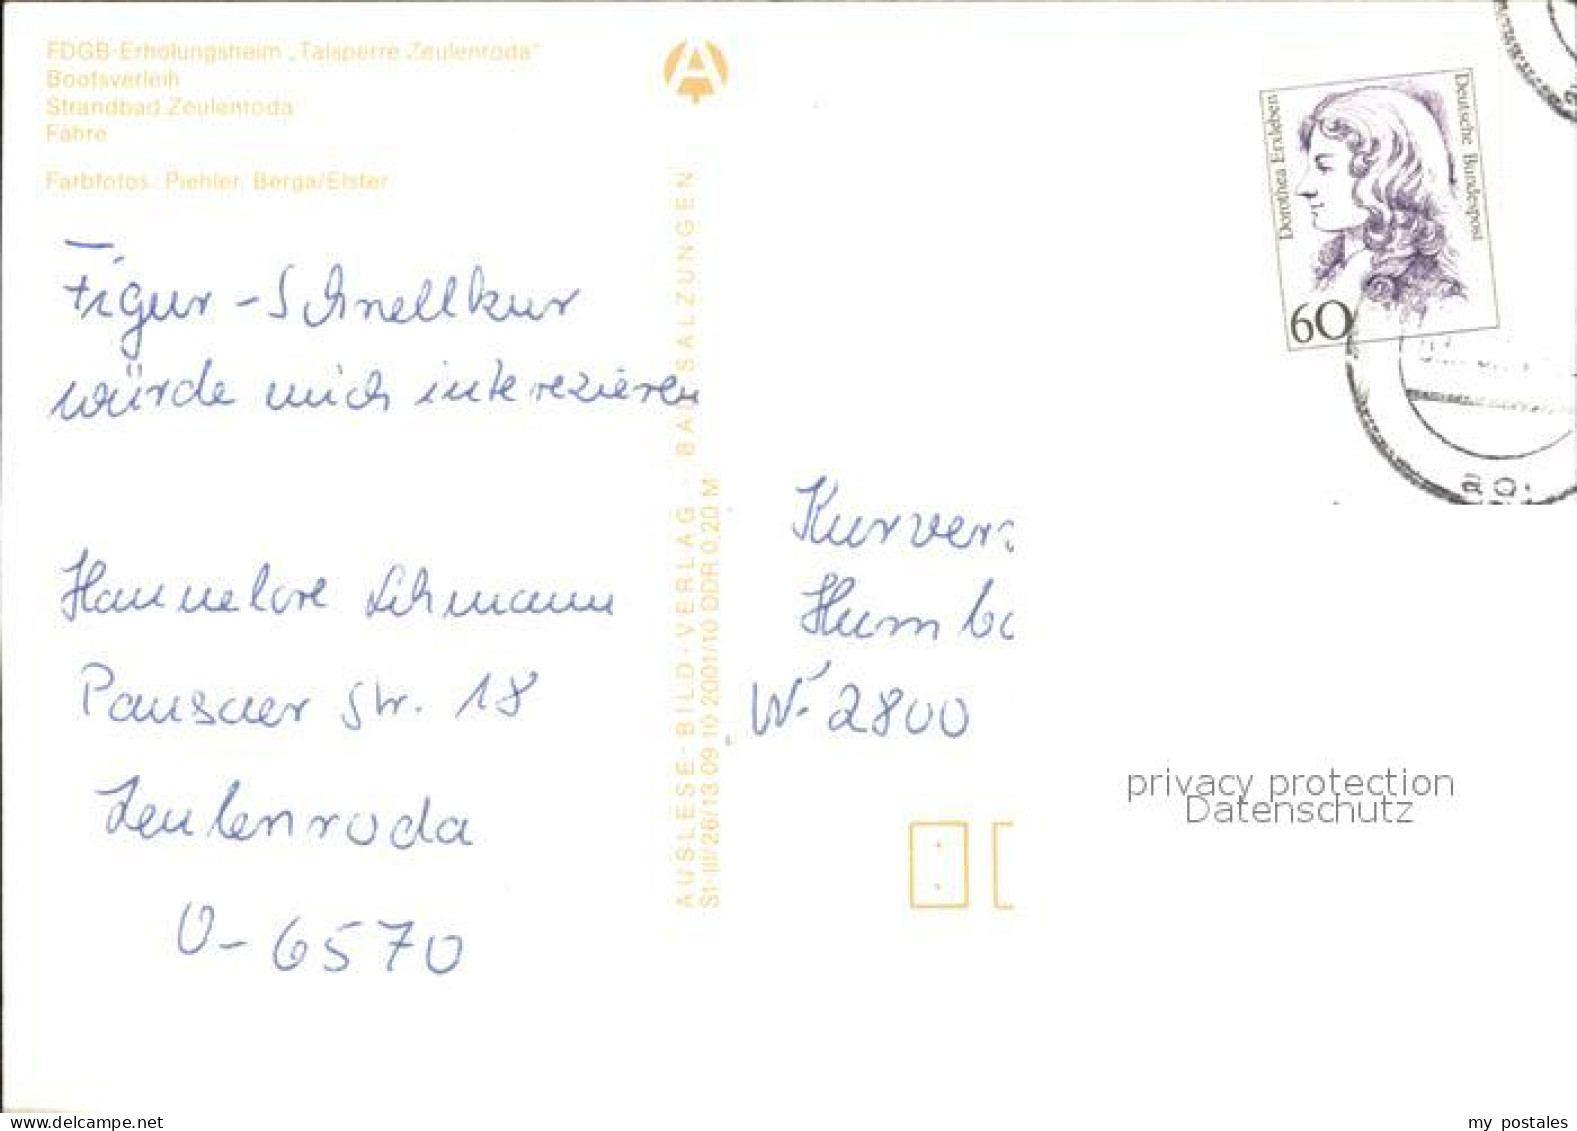 FDGB-Erholungsheim „Talsperre Zeulenroda"
Bootsverleih
Strandbad Zeulenroda
Fähre
Farbfotos: Piehler, Berga/Elster
Figur-Schnellkur
würde mich interezieren
Hannelore Lehmann
Pausaer Str. 18
Zeulenroda
O-6570
AUSLESE-BILD-VERLAG · BAD SALZUNGEN
St · III/26/13 09 10 2001/10 DDR 0,20 M
Dorothea Erxleben
Deutsche Bundespost
60
Kurver
Humbo
W-2800
privacy protection
Datenschutz
delcampe.net
my postales